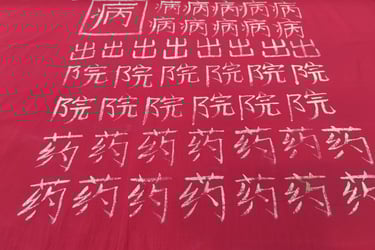 病病病病病病病
病病病病病病
出出出出出出出出
院院院院院院
院院院院院院
药药药药药药药
药药药药药药药